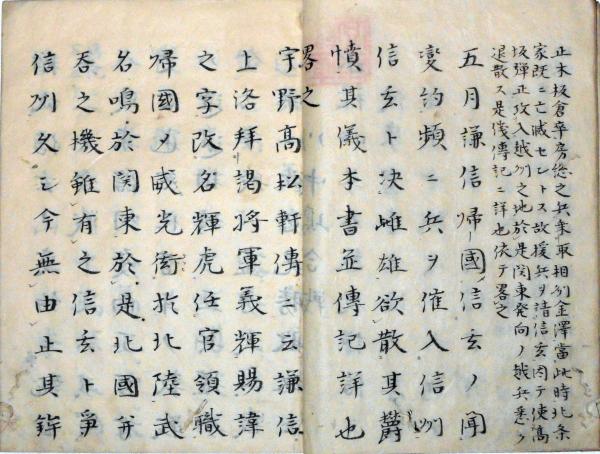 正木板倉率房總之兵来取相刕金澤當此時北条
家既ニ亡滅セントス故援兵ヲ請信玄因テ使高
坂弾正攻入越刕之地於是関東発向ノ越兵悉ク
退散ス是傳記ニ詳也依テ畧之
五月謙信帰國信玄ノ聞
變約頻ニ兵ヲ催入信州
信玄ト决雌雄欲散其欝
憤其儀本書並傳記詳也
畧之
宇野高松軒傳ニ云謙信
上洛拜謁将軍義輝賜諱
之字改名輝虎任官領職
帰國メ威光衒於北陸武
名鳴於関東於是北國并
呑之機雖有之信玄ト爭
信州久シ今無由止其鉾